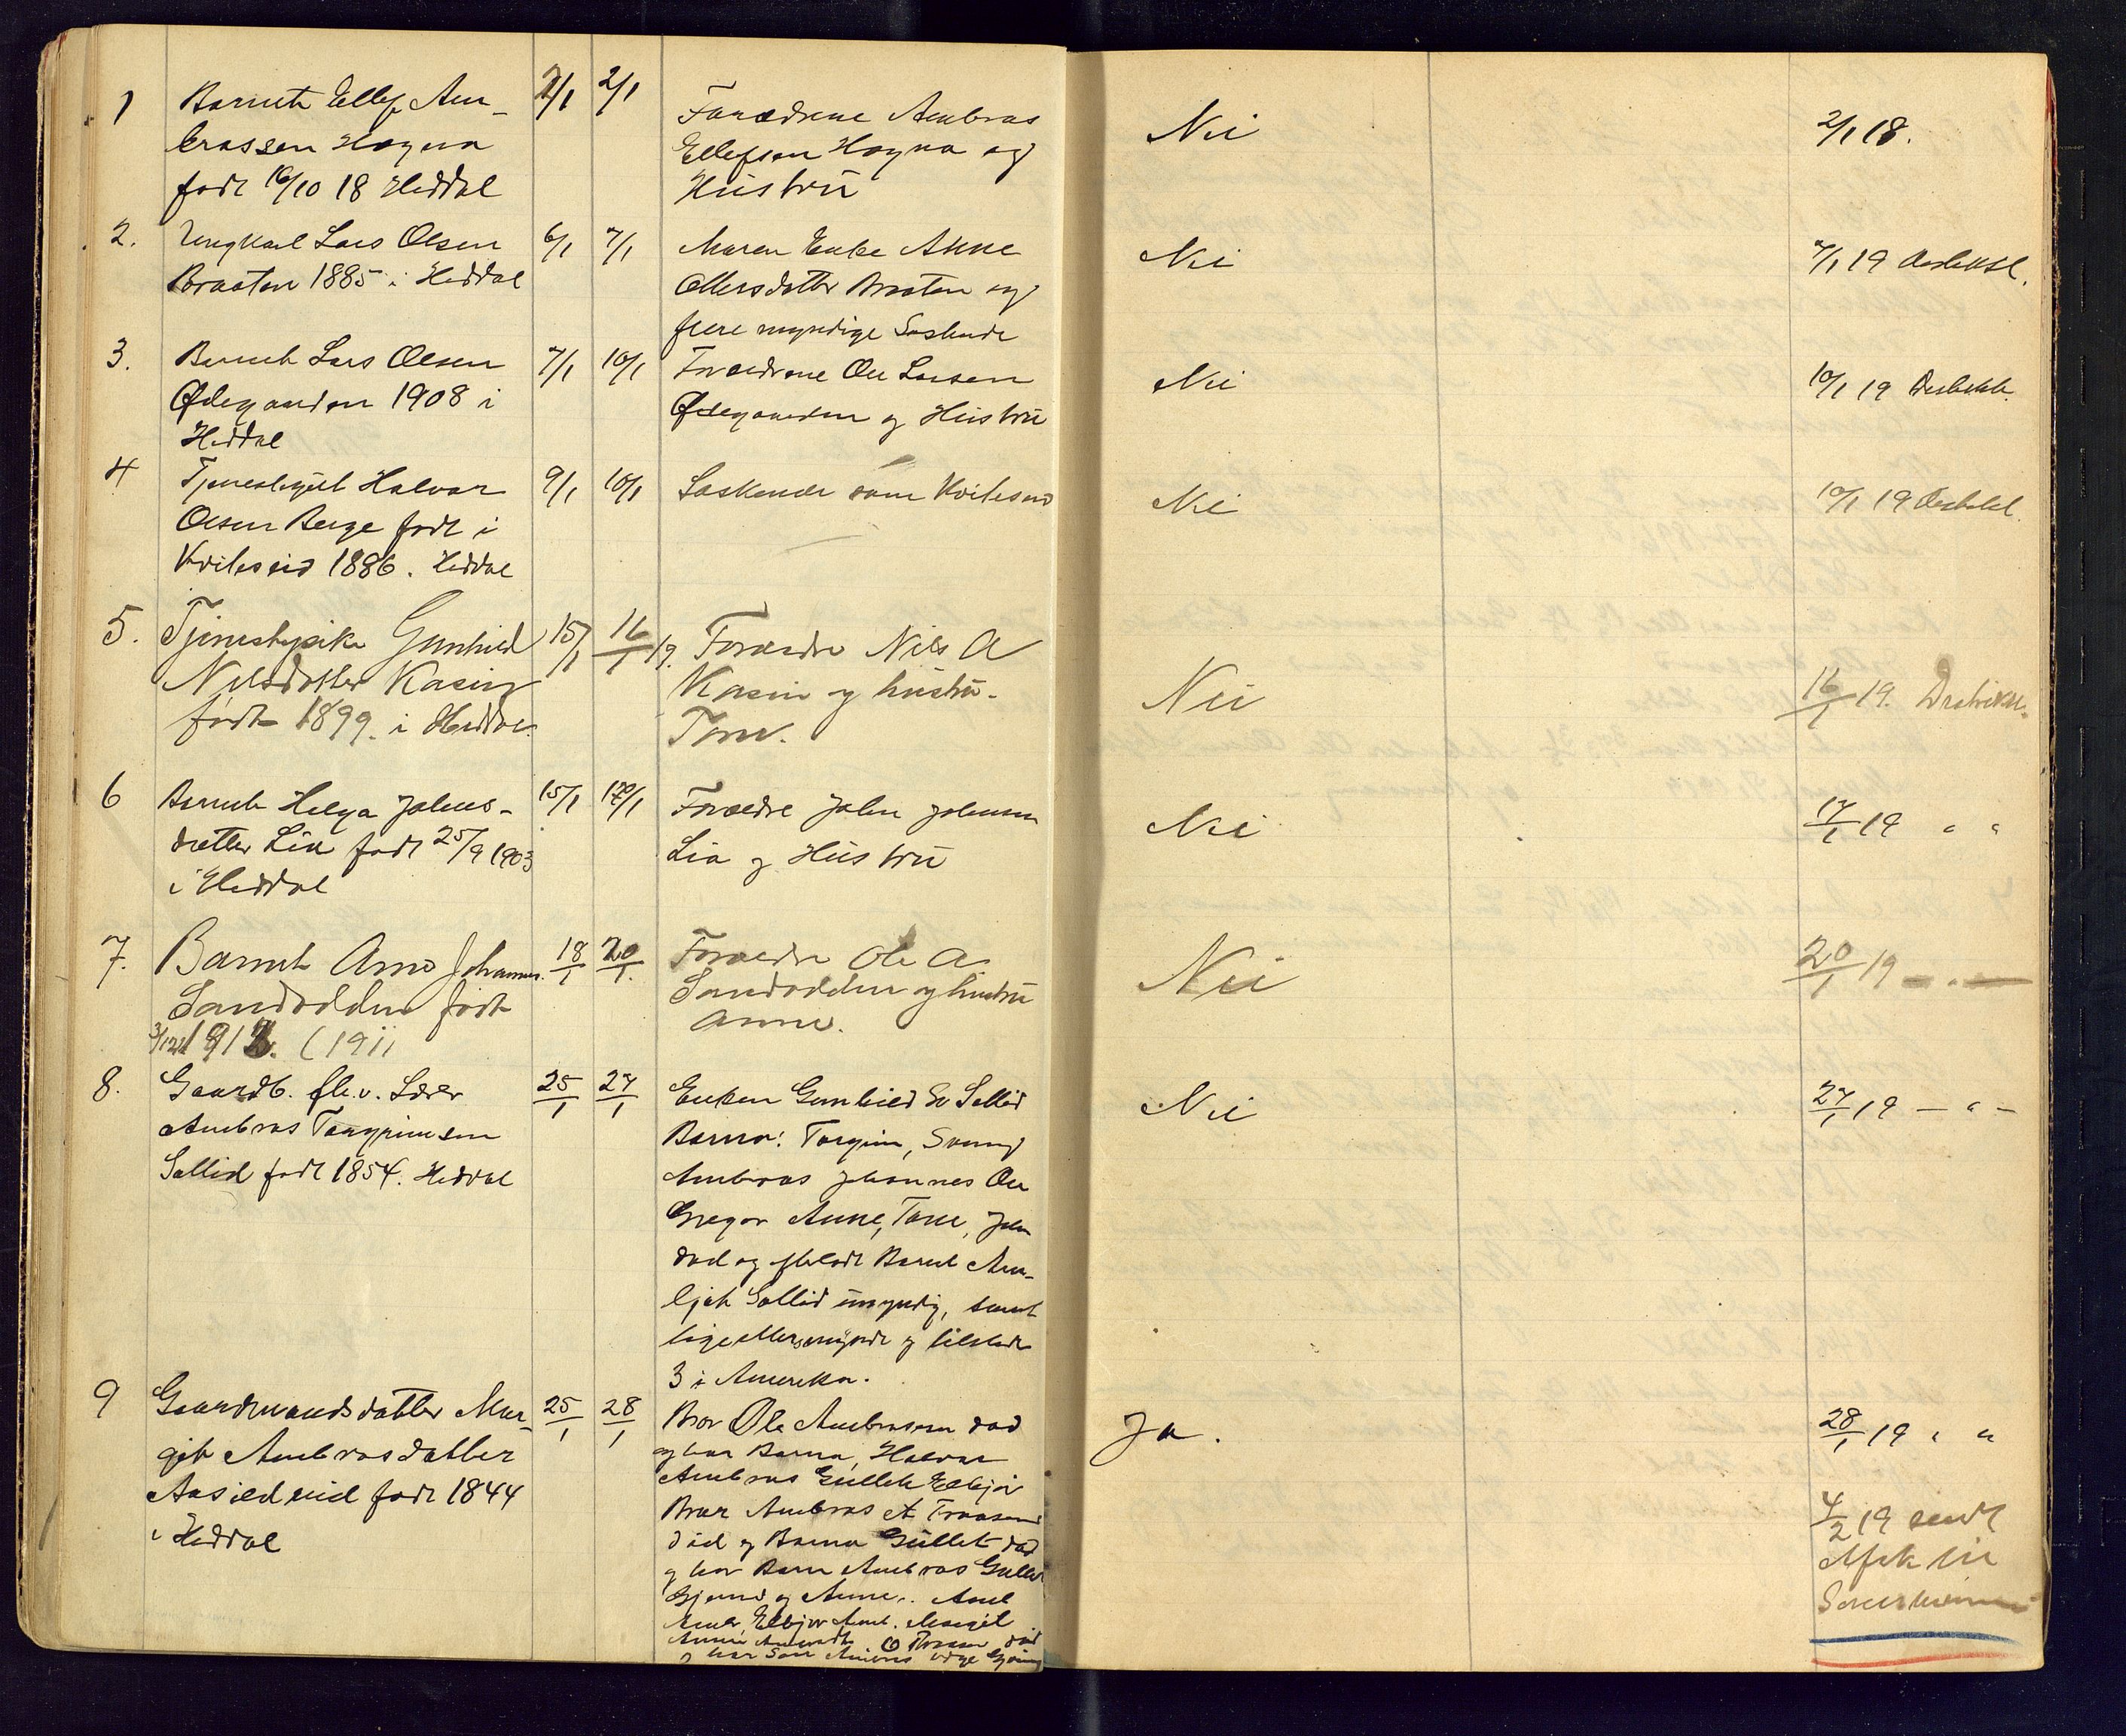 1 Barnet Ellef Am-
brossen Høgna
født 16/10 18 Heddal
2/1 2/1
Forældrene Ambros
Ellefsen Høgna og
Hustru
Nei
2/1 18.
2. Ungkarl Lars Olsen
Braaten 1885 i Heddal
6/1 7/1
Moren Enke Anne
Olersdotter Braaten og
flere myndige Søskende
Nei
7/1 19
3. Barnet Lars Olsen
Ødegaarden 1908 i
Heddal
7/1 10/1
Forældrene Ole Larsen
Ødegaarden og Hustru
Nei
10/1 19
4 Tjenestegut Halvor
Olsen Berge født i
Kviteseid 1886. Heddal
9/1 10/1
Søskende som Kviteseid
Nei
10/1 19
5. Tjenestepike Gunhild
Nilsdotter Kasin
født 1899. i Heddal.
15/1 16/1 19.
Forældre Nils A
Kasin og hustru
Tone.
Nei
16/1 19.
6 Barnet Helga Johns-
datter Lia født 25/9 1903
i Heddal
15/1 17/1
Forældre John Johnsen
Lia og Hustru
Nei
17/1 19 " "
7. Barnet Arne Johannes.
Sandodden født
3/12 1912. (1911
18/1 20/1.
Forældre Ole A.
Sandodden og hustru
Anne.
Nei
20/1 19 - " -
8. Gaardb. fhv. Lærer
Ambros Torgrimsen
Sollid født 1854. Heddal
25/1 27/1
Enken Gunhild Sv Sollid
Barna: Torgrim, Svenng
Ambros Johannes Ole
Gregor Anne, Tone, John
død og efterladt Barnet
Sollid umyndig, samt
lige myndi og tilstede
3 i Amerika.
Nei
27/1 19 - " -
9 Gaardmandsdatter Mar-
git Ambrosdatter
født 1844
i Heddal
25/1 28/1
Bror Ole Ambrosen død
og har Barna, Halvor
Ambros Gullek Elbjør
Bror Ambros A
død og Barna Gullek død
og har Barn Ambros Gullek
og Anne.
Elbjør Margit
død
og har Søn Ambros
Ja.
28/1 19 " "
4/2 19 sendt
Afsk til